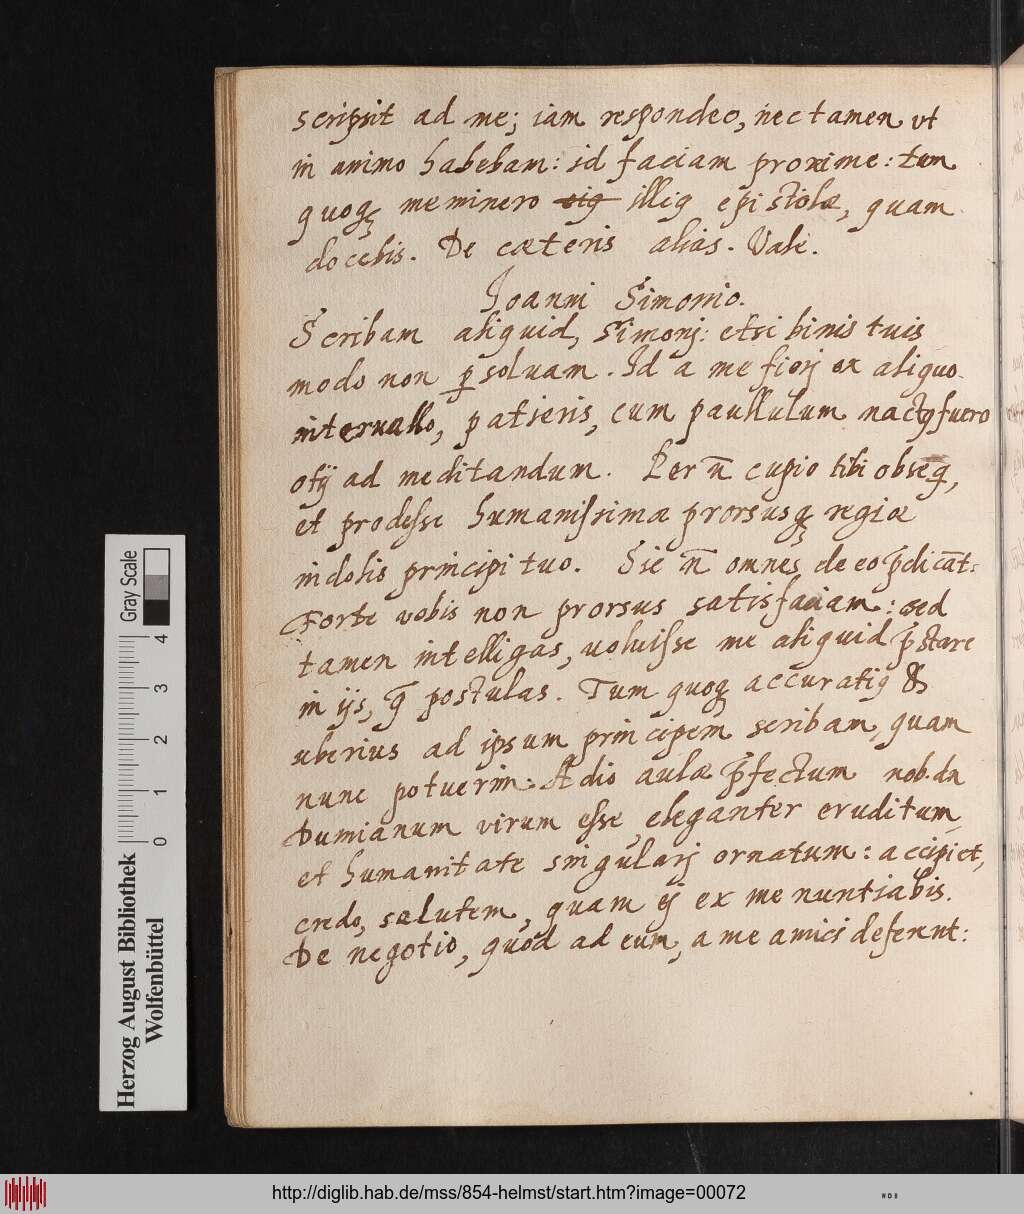 scripsit ad me; iam respondeo, nec tamen vt
in animo habebam: id faciam proxime: tum
quoqȝ meminero eiꝰ illiꝰ epistolæ, quam
docebis. De cæteris alias. Vale.
Joanni Simonio.
Scribam aliquid, Simonj: etsi binis tuis
modo non ꝑsoluam. Id a me fierj ex aliquo
interuallo, patieris, cum paullulum nactꝰ fuero
otij ad meditandum. Per n̄ cupio tibi obseq̄,
et prodesse humanissimæ prorsusqȝ regiæ
indolis principi tuo. Sic n̄ omnes de eo p̄dicāt:
Forte vobis non prorsus satisfaciam: sed
tamen intelligas, voluisse me aliquid p̄stare
in ijs, q̄ postulas. Tum quoqȝ accuratiꝰ &
uberius ad ipsum principem scribam, quam
nunc potuerim. Adio aulæ p̄fectum nob. da
Dumianum virum esse, eleganter eruditum
et humanitate singularj ornatum: accipiet,
credo, salutem, quam ej ex me nuntiabis.
De negotio, quod ad eum, a me amici deferent:
Herzog August Bibliothek
Wolfenbüttel
Gray Scale
0 1 2 3 4
http://diglib.hab.de/mss/854-helmst/start.htm?image=00072